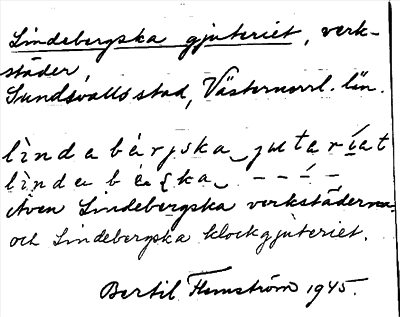 Lindebergska gjuteriet, verk-
städer,
Sundsvalls stad, Västernorrl. län.
lìndabàrjska jutaríat
lìnda bæʂka – – í –
Även Lindebergska verkstäderna
och Lindebergska klockgjuteriet.
Bertil Flemström 1945.